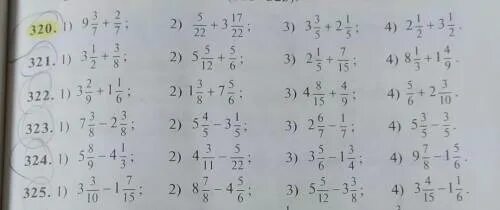 320. 1) 9 3/7 + 2/7; 2) 5/22 + 3 17/22; 3) 3 3/5 + 2 1/5; 4) 2 1/2 + 3 1/2.
321. 1) 3 1/2 + 3/8; 2) 5 5/12 + 5/6; 3) 2 1/5 + 7/15; 4) 8 1/3 + 1 4/9.
322. 1) 3 2/9 + 1 1/6; 2) 1 3/8 + 7 5/6; 3) 4 8/15 + 4/9; 4) 5/6 + 2 3/10.
323. 1) 7 3/8 − 2 3/8; 2) 5 4/5 − 3 1/5; 3) 2 6/7 − 1/7; 4) 5 3/5 − 3/5.
324. 1) 5 8/9 − 4 1/3; 2) 4 3/11 − 5/22; 3) 3 5/6 − 1 3/4; 4) 9 7/8 − 1 5/6.
325. 1) 3 3/10 − 1 7/15; 2) 8 7/8 − 4 5/6; 3) 5 5/12 − 3 3/8; 4) 3 4/15 − 1 1/6.